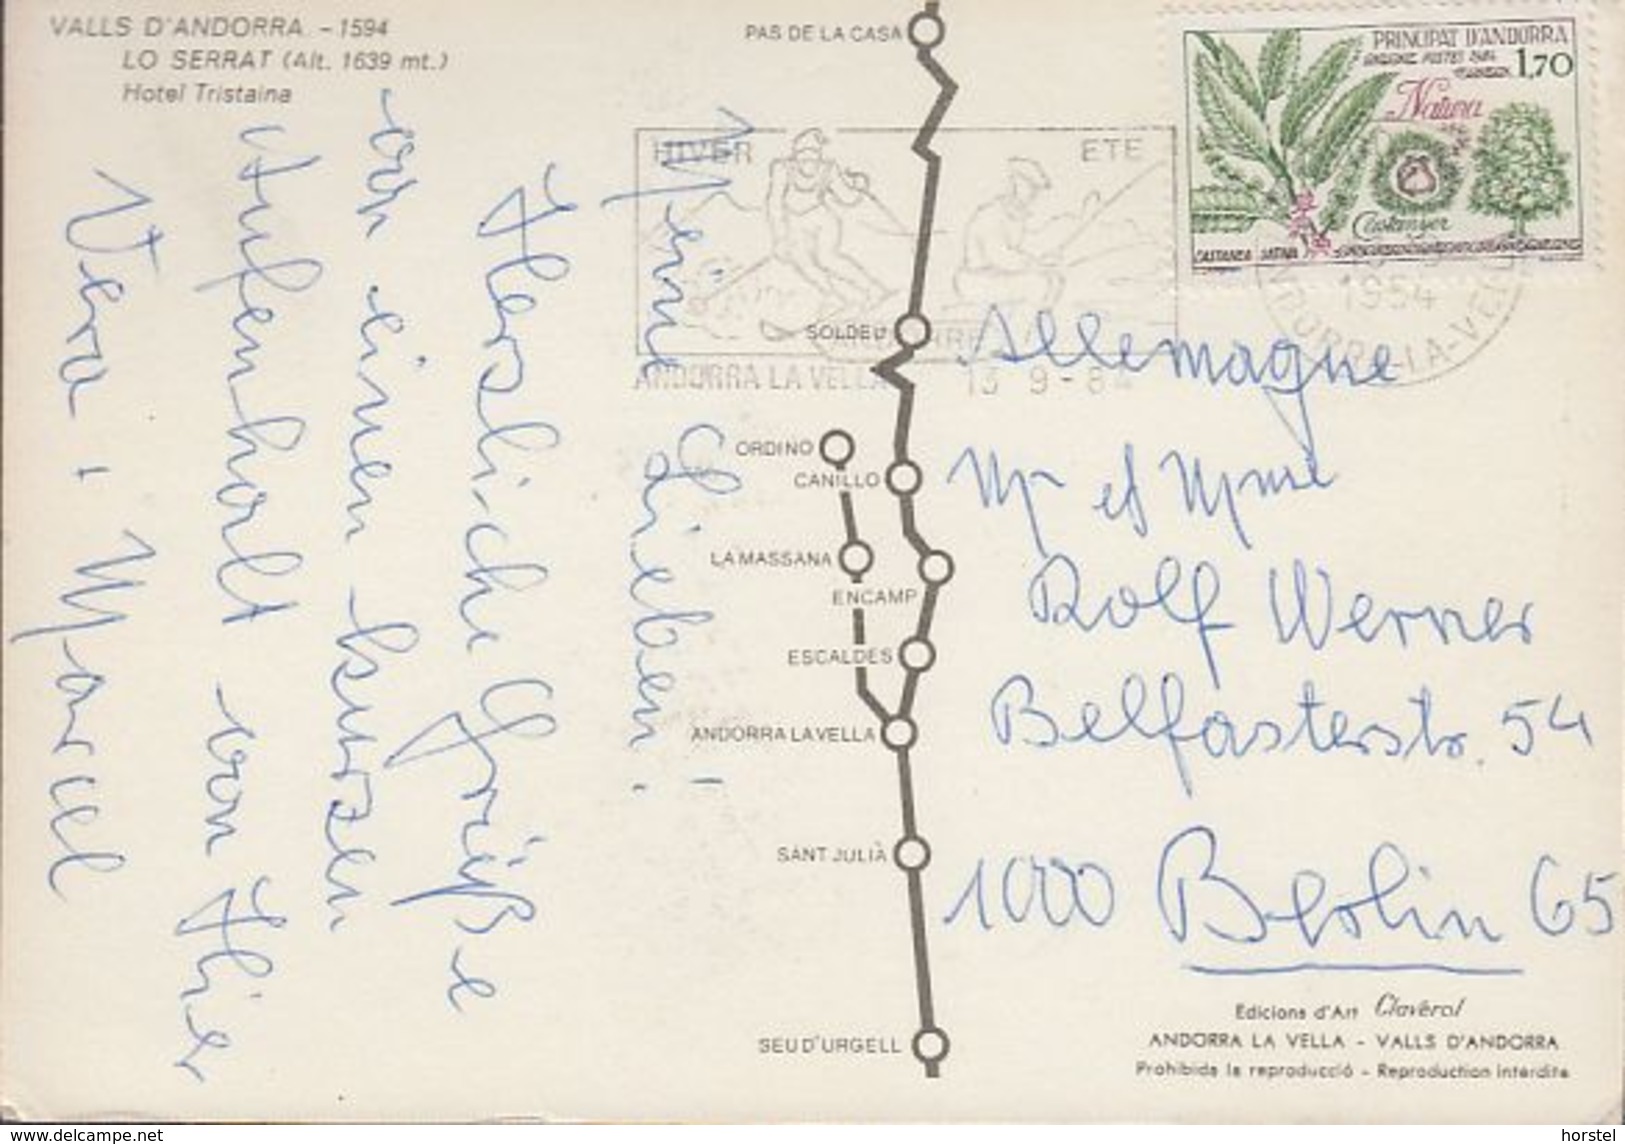 VALLS D'ANDORRA - 1594
LO SERRAT (Alt. 1639 mt.)
Hotel Tristaina
Meine Lieben!
Herzliche Grüße
an einen kurzen
Aufenhalt von Hier
Vera + Marcel
PAS DE LA CASA
SOLDEU
ORDINO
CANILLO
LA MASSANA
ENCAMP
ESCALDES
ANDORRA LA VELLA
SANT JULIÀ
SEU D'URGELL
HIVER
ETE
ANDORRA LA VELLA 13 9-84
PRINCIPAT D'ANDORRA
1,70
Natura
Castanyer
CASTANEA SATIVA
Allemagne
Mr et Mme
Rolf Werner
Belfasterstr. 54
1000 Berlin 65
Edicions d'Art Claverol
ANDORRA LA VELLA - VALLS D'ANDORRA
Prohibida la reproducció - Reproduction interdite
www.delcampe.net
horstel